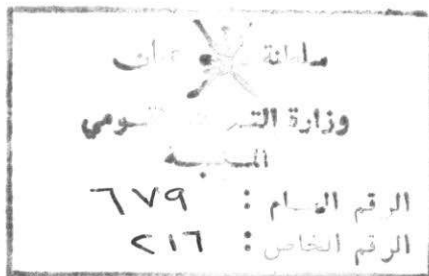 سلطنة عمان
وزارة التراث القومي
المكتبة
الرقم العام : ٦٧٩
الرقم الخاص : ٢١٦